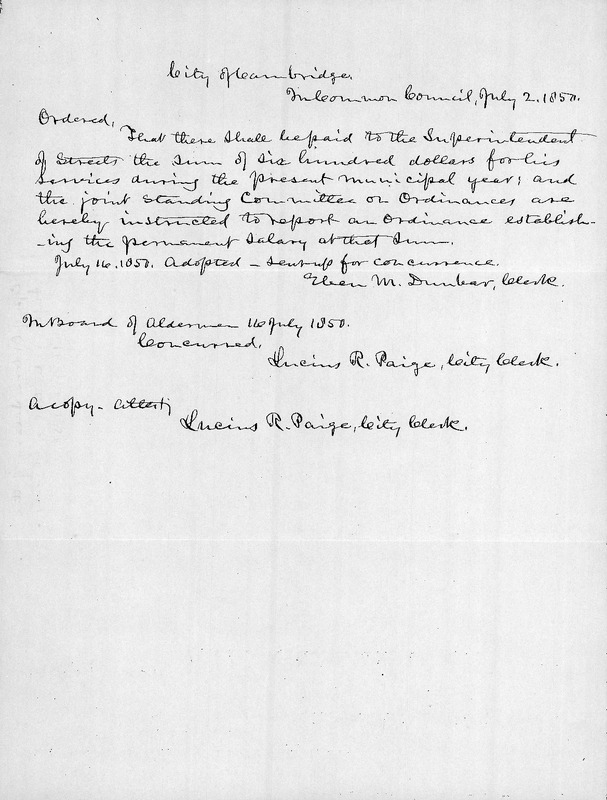 City of Cambridge.
In Common Council, July 2. 1850.
Ordered,
That there shall be paid to the Superintendent
of Streets the sum of six hundred dollars for his
services during the present municipal year; and
the joint Standing Committee on Ordinances are
hereby instructed to report an Ordinance establish-
-ing the permanent salary at that sum.
July 16. 1850. Adopted - sent up for concurrence.
Eben M. Dunbar, Clerk.
In Board of Aldermen 16 July 1850.
Concurred,
Lucius R. Paige, City Clerk.
A copy. Attest;
Lucius R. Paige, City Clerk.